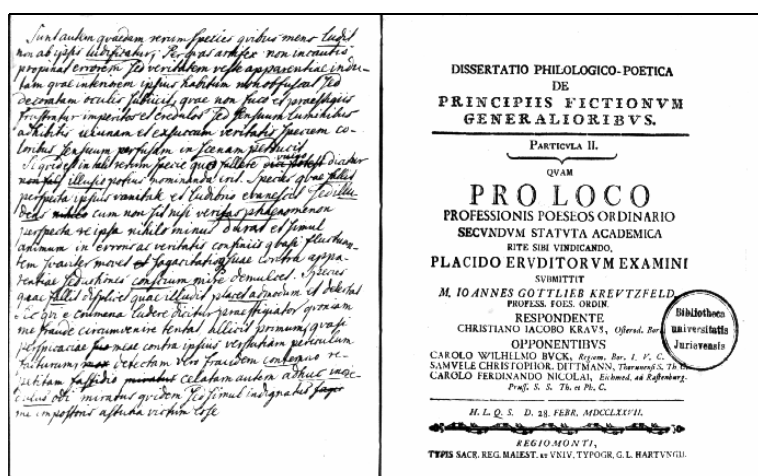 Sunt autem quaedam rerum species quibus mens ludit
non ab ipsis ludificatur. Per quas artifex non incautis
propinat errorem sed veritatem veste apparentiae indu-
tam quae internam ipsius habitum non obfuscat sed
decoratam oculis quae non fuco et praestigiis
frustratur imperitos et credulos sed sensuum luminibus
veritatis speciem co-
loribus sensuum perfusam in scenam
rerum specie fallere vulgo dicitur
illusio potius nominanda erit. Species quae fallit
perspecta ipsius vanitate et ludibrio evanescit sed illu-
dens cum non sit nisi veritas phaenomenon
perspecta re ipsa nihilo minus durat et simul
animum in erroris ac veritatis confiniis quasi fluctuan-
tem movet contra appa-
rentiae mire demulcet. Species
quae fallit displicet quae illudit placet admodum et delectat
ludere dicitur praestigiator quoniam
me fraude circumvenire tentat allicit primum, quasi
perspicaciae meae contra ipsius versutiam periculum
facturum, detectam vero fraudem contemno re-
petitam fastidio celatam autem adhuc
miratus quidem sed simul indignatus
me impostoris astutia victum esse
DISSERTATIO PHILOLOGICO-POETICA
DE
PRINCIPIIS FICTIONVM
GENERALIORIBVS.
PARTICVLA II.
QVAM
PRO LOCO
PROFESSIONIS POESEOS ORDINARIO
SECVNDVM STATVTA ACADEMICA
RITE SIBI VINDICANDO,
PLACIDO ERVDITORVM EXAMINI
SVBMITTIT
M. IOANNES GOTTLIEB KREVTZFELD,
PROFESS. POES. ORDIN.
RESPONDENTE
CHRISTIANO IACOBO KRAVS, Osterod. Bor.
OPPONENTIBVS
CAROLO WILHELMO BVCK, Regiom. Bor. I. V. C.
SAMVELE CHRISTOPHOR. DITTMANN, Thorunensi S. Th C.
CAROLO FERDINANDO NICOLAI, Eichmed. ad Rastenburg.
Pruss. S. S. Th. et Ph. C.
Bibliotheca
universitatis
Jurievensis
H. L. Q. S. D. 28. FEBR. MDCCLXXVII.
REGIOMONTI,
TYPIS SACR. REG. MAIEST. ET VNIV. TYPOGR. G. L. HARTVNGII.